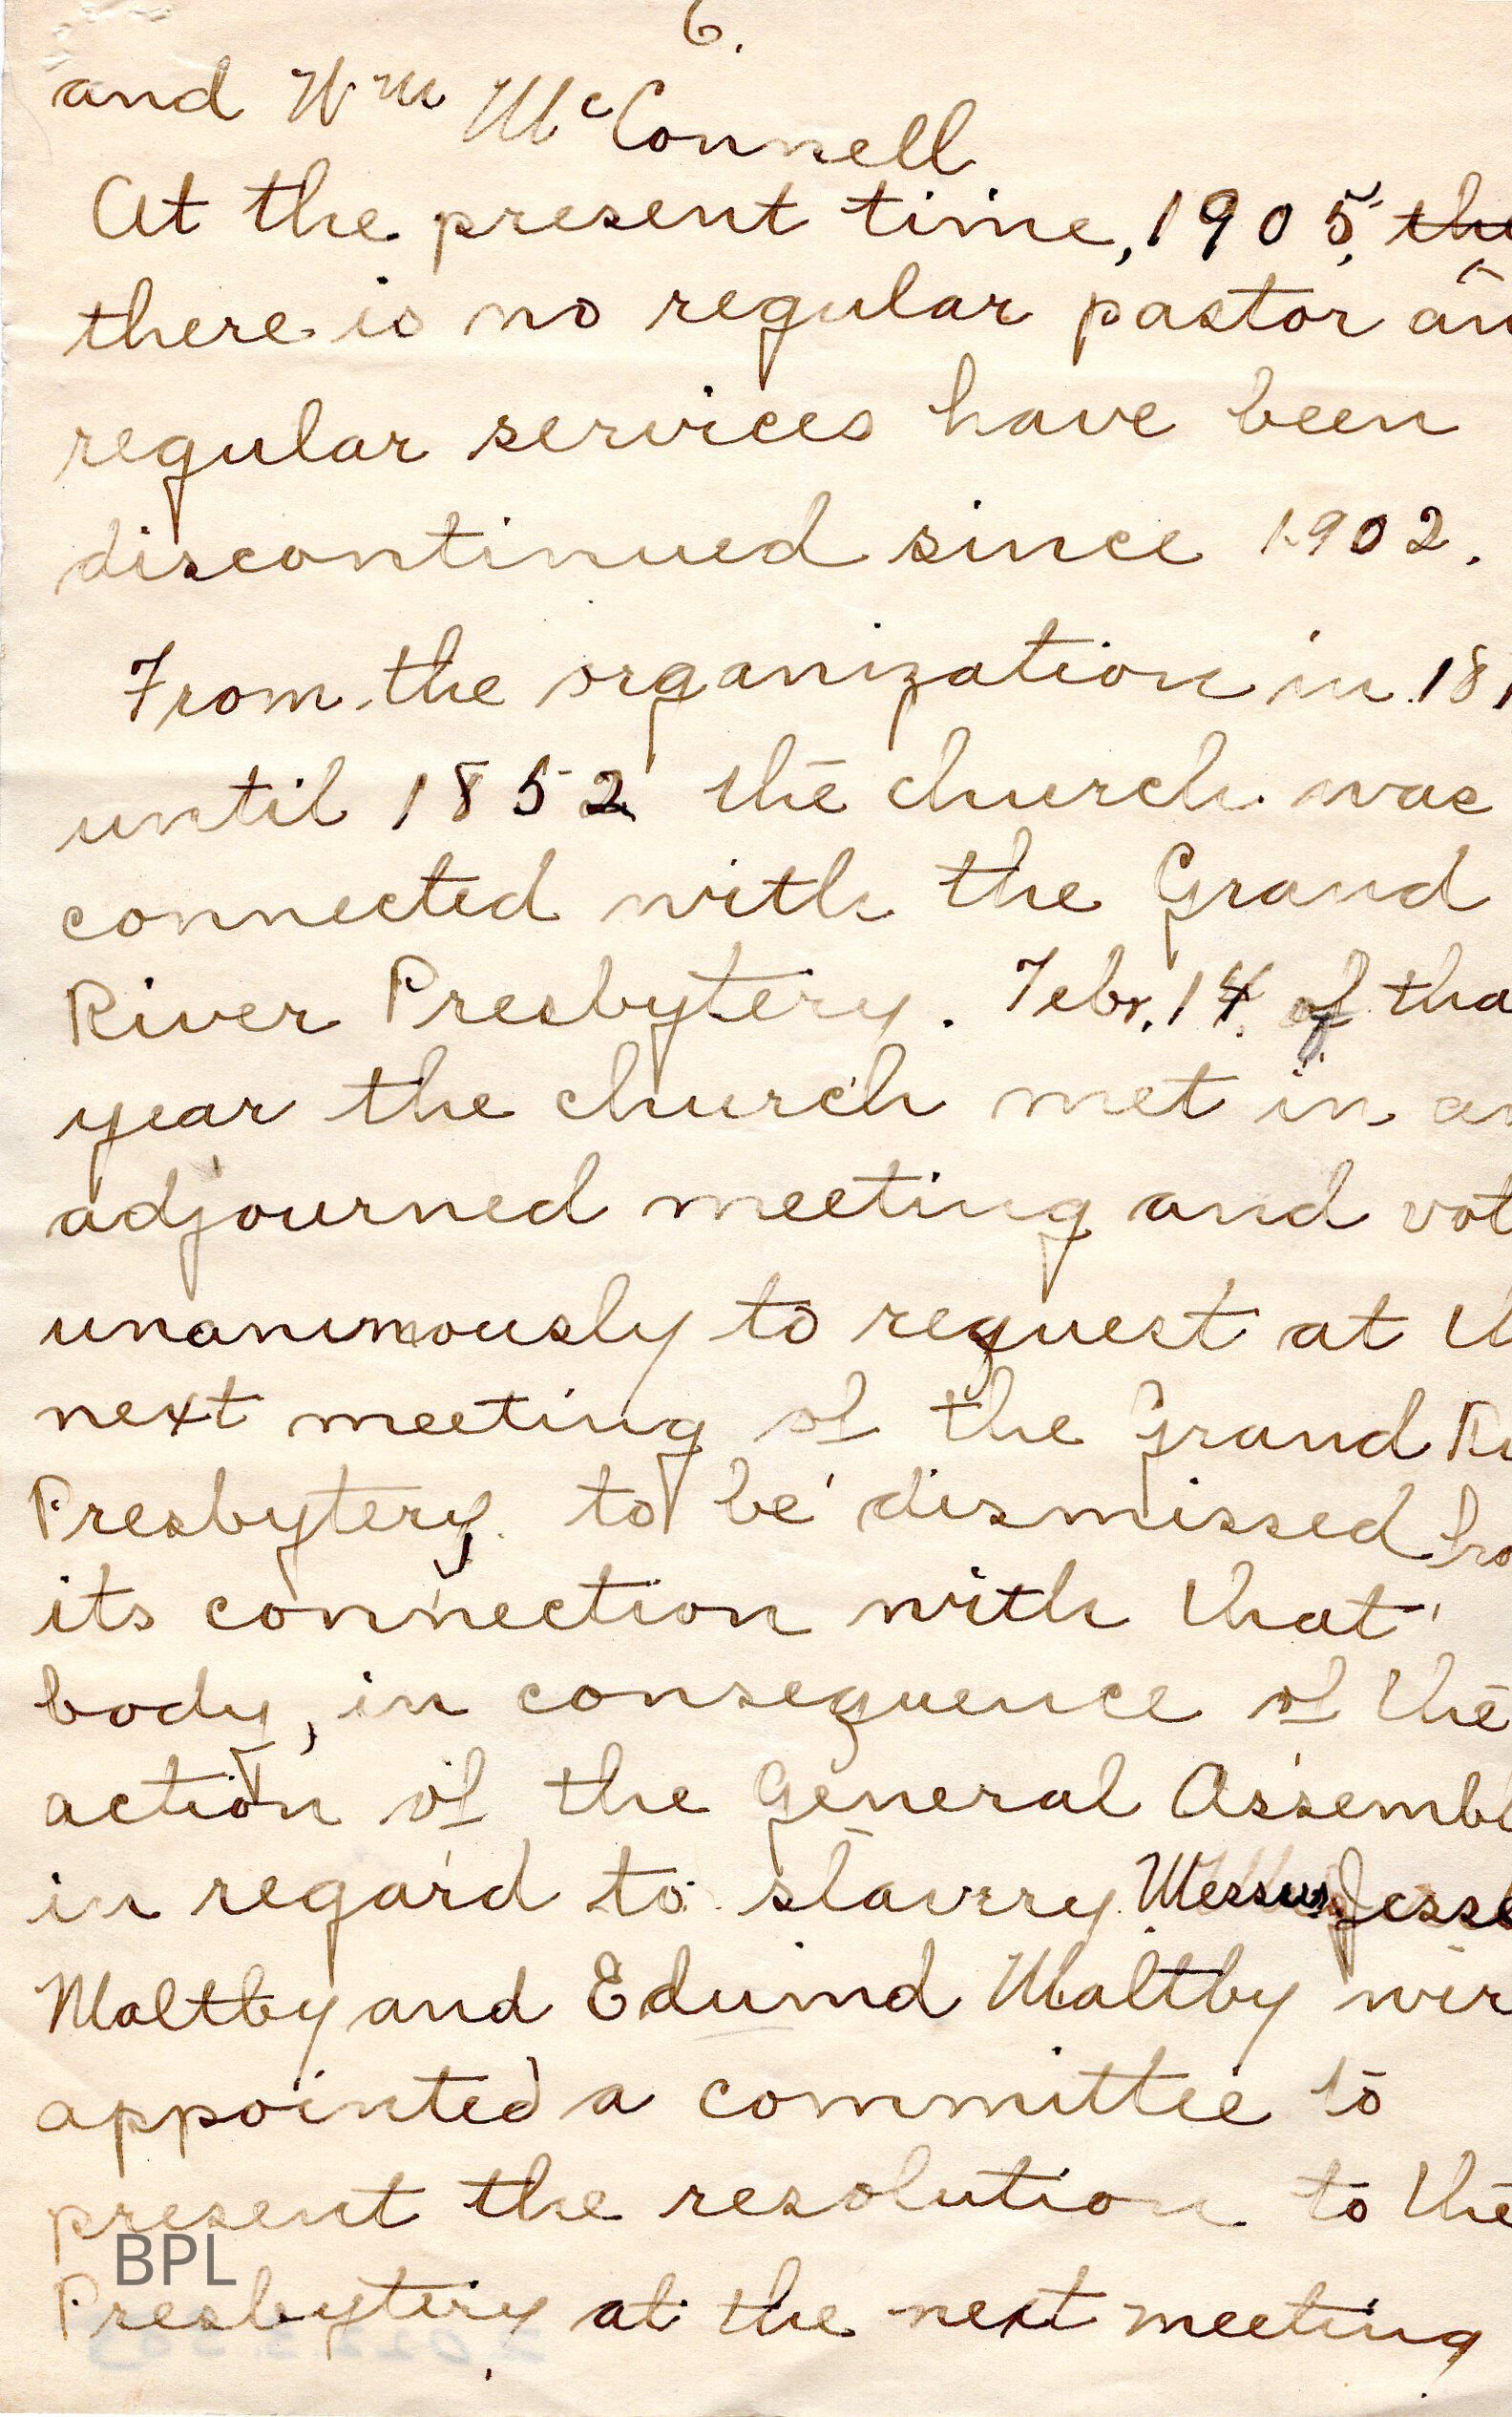 6.
and Wm McConnell
At the present time, 1905, the
there is no regular pastor an
regular services have been
discontinued since 1902.
From the organization in 181
until 1852 the church was
connected with the Grand
River Presbytery. Febr. 14 of tha
year the church met in an
adjourned meeting and vot
unanimously to request at th
next meeting of the Grand Ri
Presbytery to be dismissed fro
its connection with that
body, in consequence of the
action of the General Assembl
in regard to slavery. Messrs. Jesse
Maltby and Edmund Maltby wer
appointed a committee to
present the resolution to the
BPL
Presbytery at the next meeting